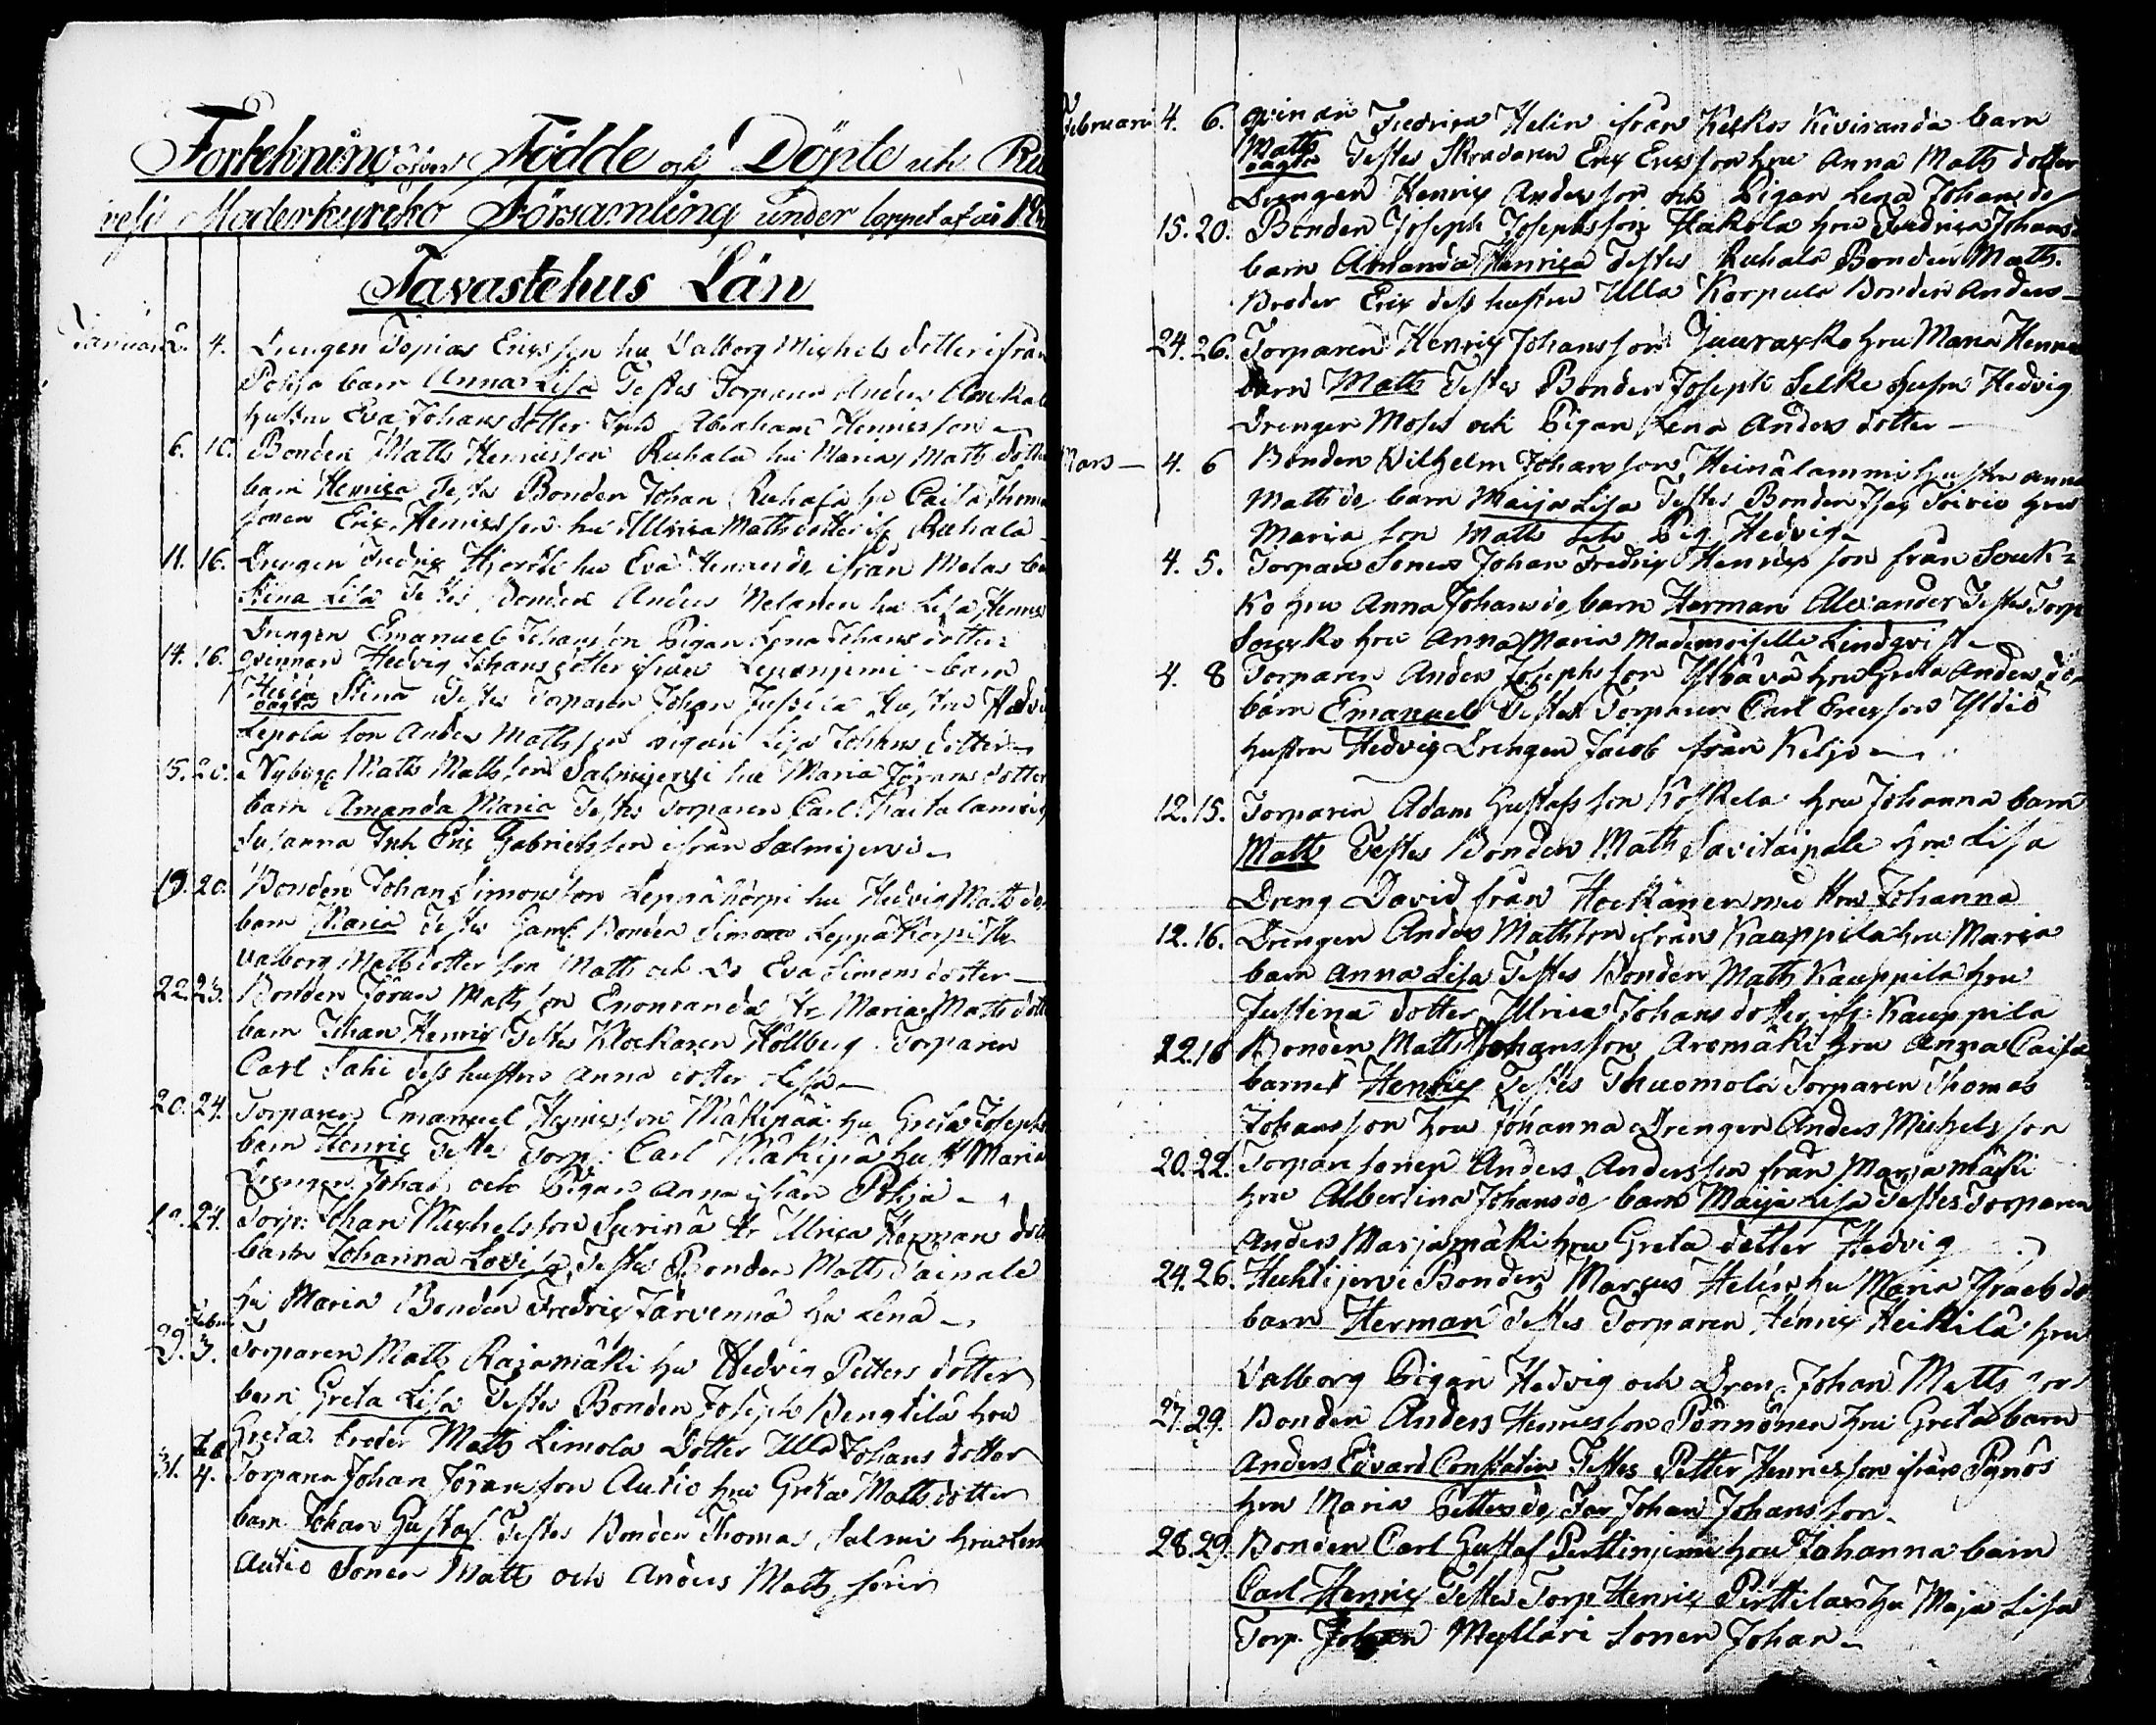 Förtekning öfver Födde och Döpte uti Ru
vesi Moderkyrko Församling under loppet af år 18
Tavastehus Län
Januari 2. 4. Drengen Topias Ericsson hu Valborg Michels dotter ifrån
Pohja barn Anna Lisa Testes Torparen Anders
hustru Eva Johans dotter Inh Abraham Henricsson
6. 10. Bonden Matts Henricsson Ruhala hu Maria Matts dotter
barn Henrica Testes Bonden Johan Ruhala hu Caisa Thom
sonen Eric Henricsson hu Ulrica Matts dotter if Ruhala
11. 16. Drengen Fredric hu Eva Henrics dr ifrån Melas
Stina Lisa Testes Bonden Anders Melanen hu Lisa Henric
Drengen Emanuel Johansson Pigan Lena Johans dotter
14. 16. qvinnan Hedvig Johans dotter ifrån Leponjemi barn
oägta Stina Testes Torparen Johan Jussila Hustru Hedvi
Lepola son Anders Mattsson pigan Lisa Johans dotter
15. 20. Nybygg Matts Mattsson Salmijervi hu Maria Jörans dotter
barn Amanda Maria Testes Torparen Carl
Susanna Inh Eric Gabrielsson ifrån Salmijervi
19. 20. Bonden Johan Simonsson Leppäkorpi hu Hedvig Matts do
barn Maria Testes Gaml Bonden Simon Leppäkorpi
Valborg Matts dotter son Matts och Do Eva Simons dotter
22. 23. Bonden Jöran Mattsson Enonranda Hr Maria Matts dott
barn Johan Henric Testes Klockaren Hollberg Torparen
Carl Lahi dess hustru Anna dotter Lisa
20. 24. Torparen Emanuel Henricsson Mäkipää hu Greta Joseph
barn Henric Testes Torp: Carl Mäkipä hust Maria
Drengen Johan och Pigan Anna ifrån Pohja
24. Torp: Johan Michelsson Hr Ulrica Herman dott
barn Johanna Lovisa Testes Bonden Matts
hu Maria Bonden Fredric Järvennä hu Lena
29. Febru 3. Torparen Matts Rajamäki hu Hedvig Petters dotter
barn Greta Lisa Testes Bonden Joseph Bengtilä hru
Greta broder Matts Limola Dotter Ulla Johans dotter
31. Feb 4. Torparen Johan Jöransson Autio hru Greta Matts dotter
barn Johan Gustaf Testes Bonden Thomas Salmi hru Lena
Autio Sonen Matts och Anders Mattssöner
Februari 4. 6. qvinan Fredrica Helin ifrån Keskos Kiviranda barn
Matts
oägta Testes Skredaren Eric Ericsson hru Anna Matts dotter
Drengen Henric Andersson och Pigan Lena Johans do
15. 20. Bonden Joseph Josephsson Hakola hru Fredrica Johans
barn Amanda Henrica Testes Ruhala Bonden Matts
Broder Eric dess hustru Ulla Korpula Bonden Anders
24. 26. Torparen Henric Johansson hru Maria Henric
barn Matts Testes Bonden Joseph Selke hustru Hedvig
Drengen Moses och Pigan Lena Anders dotter
Mars 4. 6 Bonden Vilhelm Johansson Heinälammi hustru Anna
Matts do barn Maija Lisa Testes Bonden Isac Toivio hru
Maria son Matts och Pig Hedvig
4. 5. Torpare Sonen Johan Fredric Henricsson från Souk-
ko hru Anna Johans do barn Herman Alexander Testes Torp
Soucko hru Anna Maria Mademoiselle Lindqvist
4. 8 Torparen Anders Josephsson hru Greta Anders do
barn Emanuel Testes Torparen Carl Ericsson
hustru Hedvig Drengen Jacob från Keljo
12. 15. Torparen Adam Gustafsson Koskela hru Johanna barn
Matts Testes Bonden Matts Savitaipale hru Lisa
Dreng David från Hockänen med Hru Johanna
12. 16. Drengen Anders Mattsson ifrån Kauppila hru Maria
barn Anna Lisa Testes Bonden Matts Kauppila hru
Justina dotter Ulrica Johans dotter if: Kauppila
22. 18 Bonden Matts Johansson Aromäki hru Anna Caisa
barnet Henric Testes Thuomola Torparen Thomas
Johansson hru Johanna Drengen Anders Michelsson
20. 22. Torpare sonen Anders Andersson från Marjamäki
hru Albertina Johans do barn Maija Lisa Testes Torparen
Anders Marjamäki hru Greta dotter Hedvig
24. 26. Huhtijervi Bonden Marcus Helin hu Maria Jacobs do
barn Herman Testes Torparen Henric Heikilä hru
Valborg Pigan Hedvig och Dren. Johan Mattsson
27. 29. Bonden Anders Henricsson Pönnönen hru Greta barn
Anders Edvard Constatin Testes Petter Henricsson ifrån
hru Maria Petters do Far Johan Johansson
28. 29. Bonden Carl Gustaf Perttinjemi hru Johanna barn
Carl Henric Testes Torp Henric Pirttilax hu Maja Lisa
Torp. Johan Myllari Sonen Johan